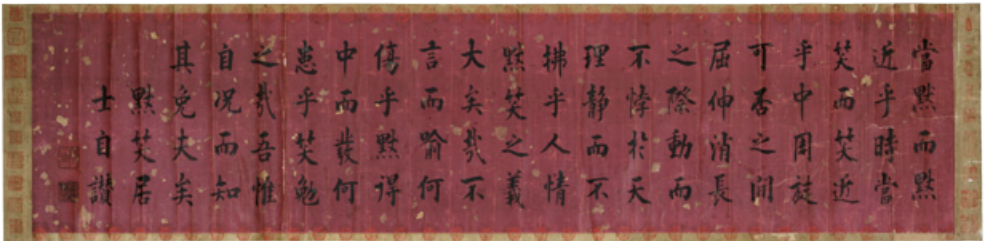 當默而默
近乎時當
笑而笑近
乎中周旋
可否之間
屈伸消長
之際動而
不悖於天
理靜而不
拂乎人情
默笑之義
大矣哉不
言而喻何
傷乎默得
中而發何
患乎笑勉
之哉吾惟
自況而知
其免夫矣
默笑居
士自讚